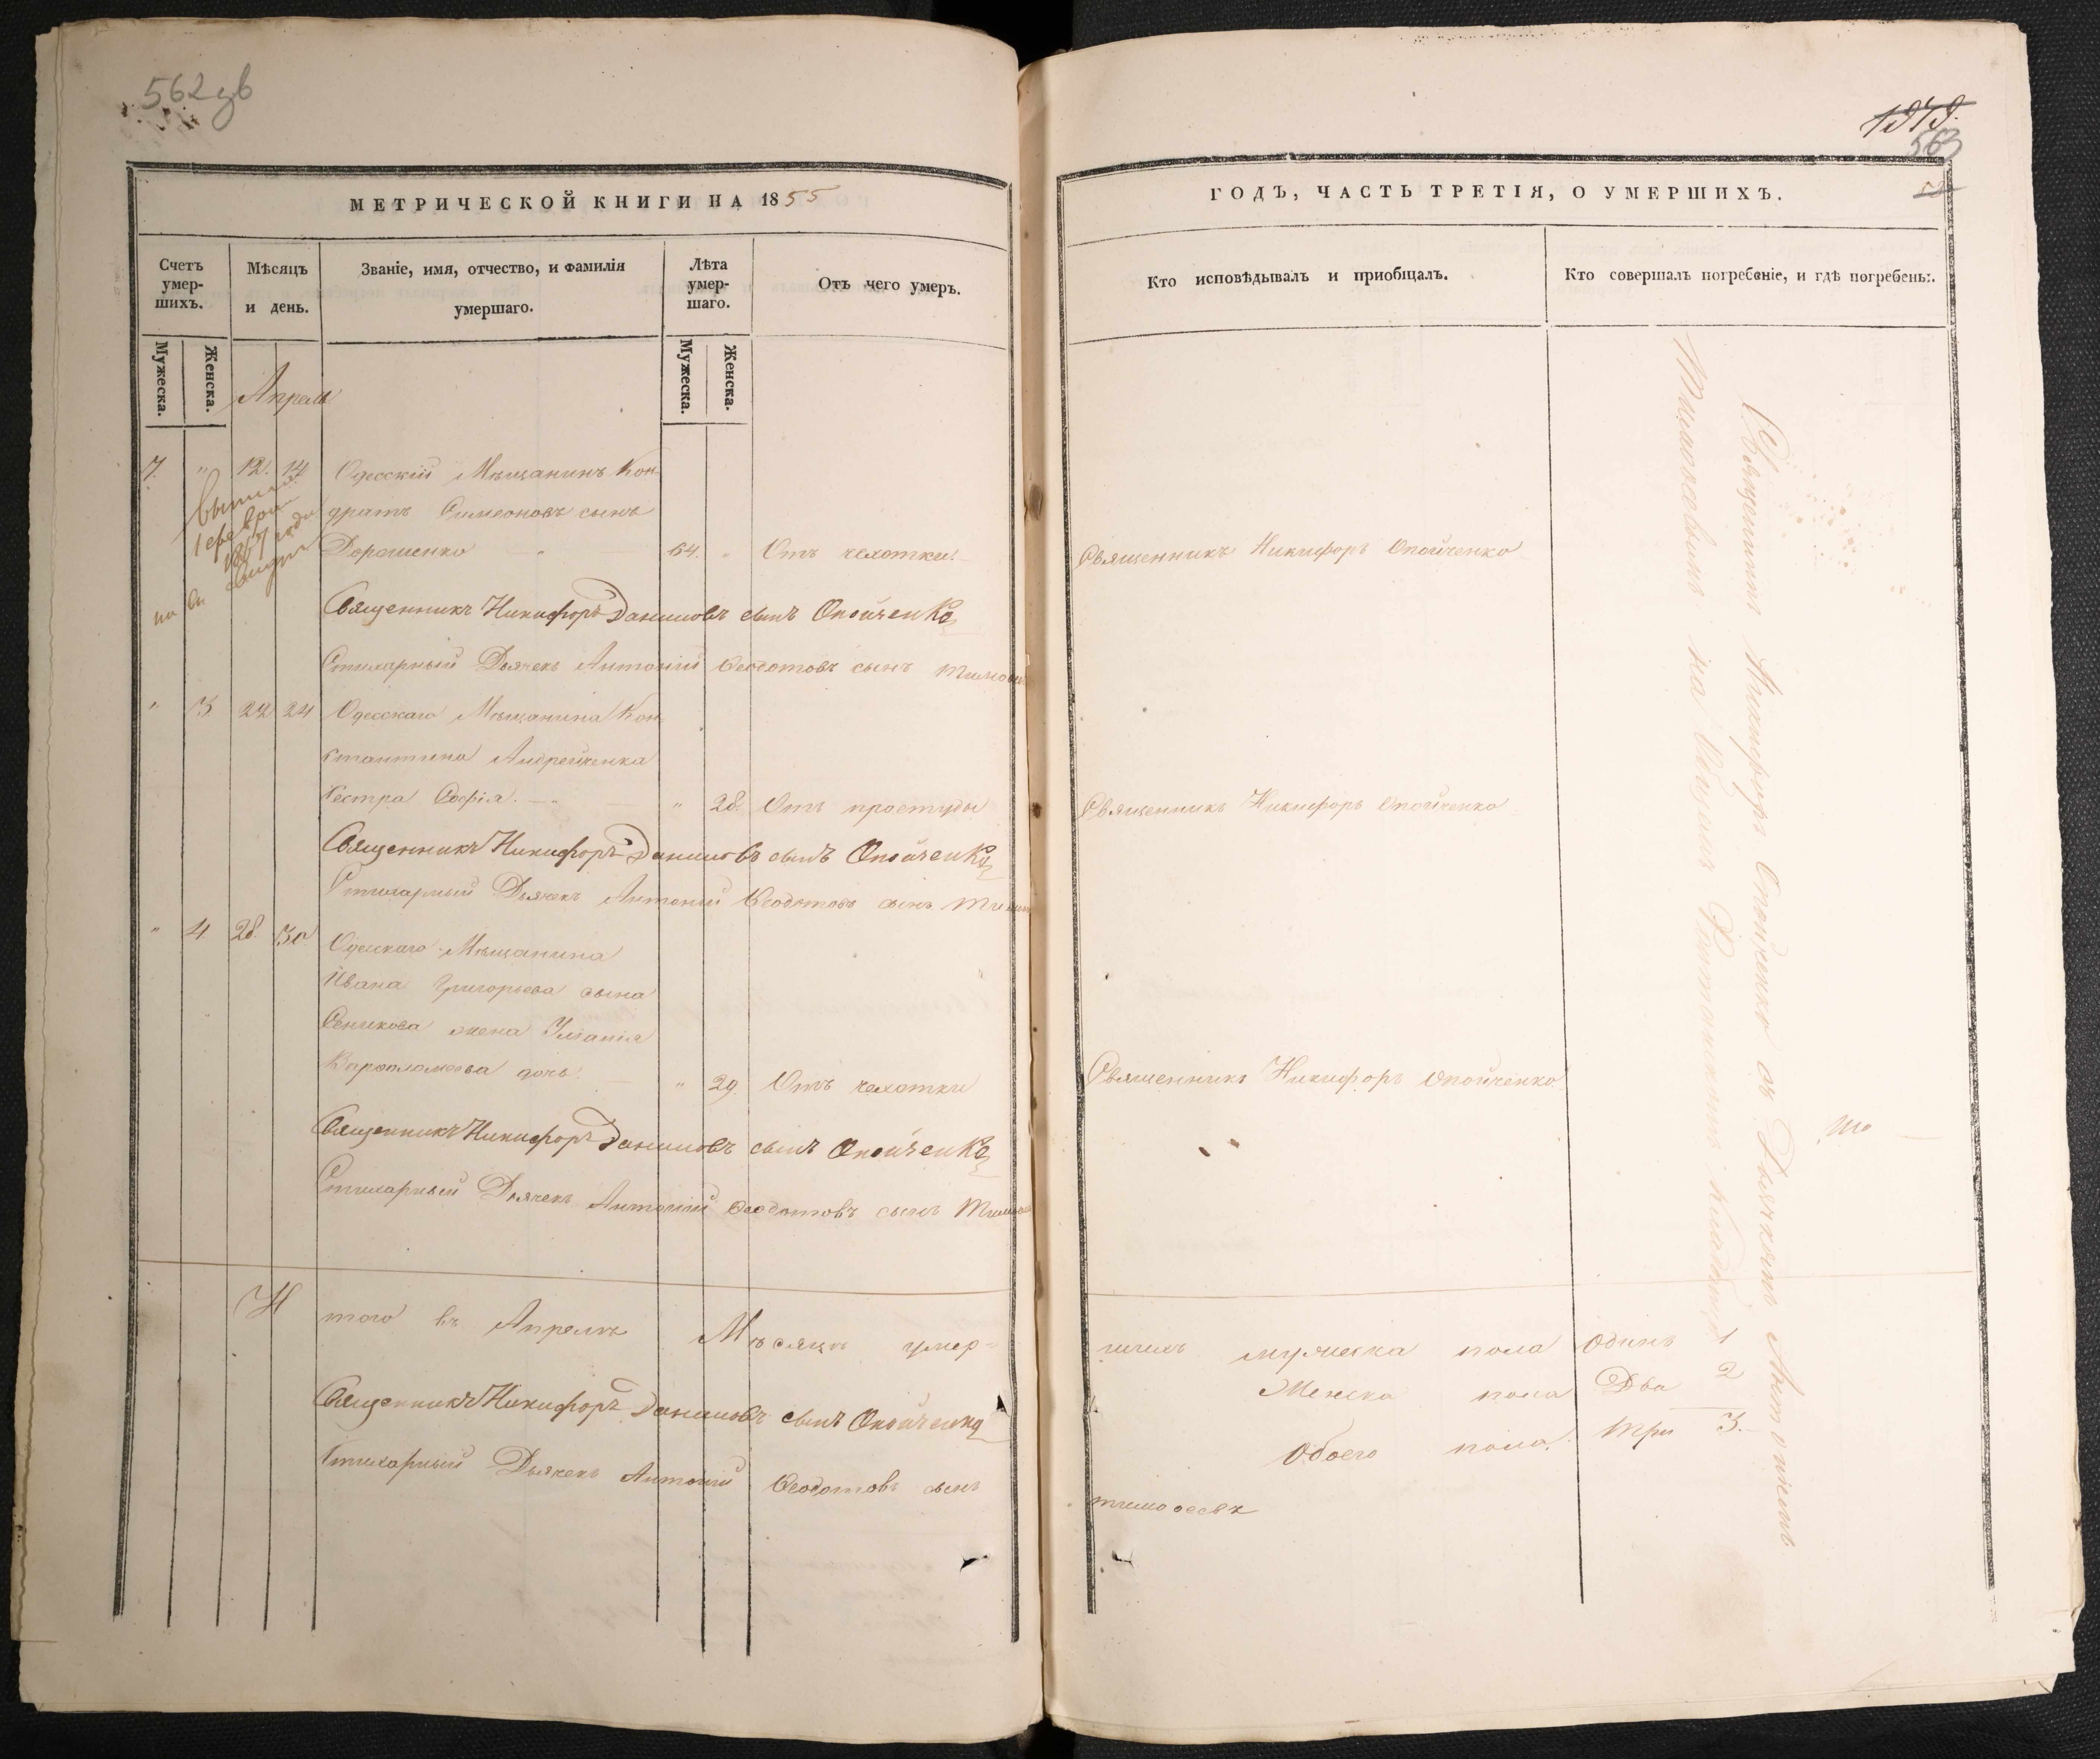 562 зв
МЕТРИЧЕСКОЙ КНИГИ НА 1855
Счетъ умер-шихъ.
Мѣсяцъ и день.
Званіе, имя, отчество, и фамилія умершаго.
Лѣта умер-шаго.
Отъ чего умеръ.
Мужеска.
Женска.
Мужеска.
Женска.
Апрель
7. " 12. 14 Одесскій Мѣщанинъ Кон-
дратъ Симеоновъ сынъ
Дорошенко 64. " Отъ чехотки.
Священникъ Никифоръ Даниловъ сынъ Опойченко
Стихарный Дьячекъ Антоній Феодотовъ сынъ
" 3 22 24 Одесскаго Мѣщанина Кон-
стантина Андрейченка
сестра Софія. " 28. Отъ простуды
Священникъ Никифоръ Даниловъ сынъ Опойченко
Стихарный Дьячекъ Антоній Феодотовъ сынъ
" 4 28. 30 Одесскаго Мѣщанина
Ивана Григорьева сына
жена
Варфоломеева дочь " 29. Отъ чехотки
Священникъ Никифоръ Даниловъ сынъ Опойченко
Стихарный Дьячекъ Антоній Феодотовъ сынъ
Итого въ Апрелѣ Мѣсяцѣ умер=
Священникъ Никифоръ Даниловъ сынъ Опойченко
Стихарный Дьячекъ Антоній Феодотовъ сынъ
563
ГОДЪ, ЧАСТЬ ТРЕТІЯ, О УМЕРШИХЪ.
Кто исповѣдывалъ и пріобщалъ.
Кто совершалъ погребеніе, и гдѣ погребены.
Священникъ Никифоръ Опойченко
Священникъ Никифоръ Опойченко
Священникъ Никифоръ Опойченко
Священникъ Никифоръ Опойченко съ Дьячкомъ Антоніемъ
Тимофеевымъ на Общемъ кладбищѣ
шихъ мужеска пола Одинъ 1
Женска пола Два 2
Обоего пола. Три 3.
Тимофеевъ